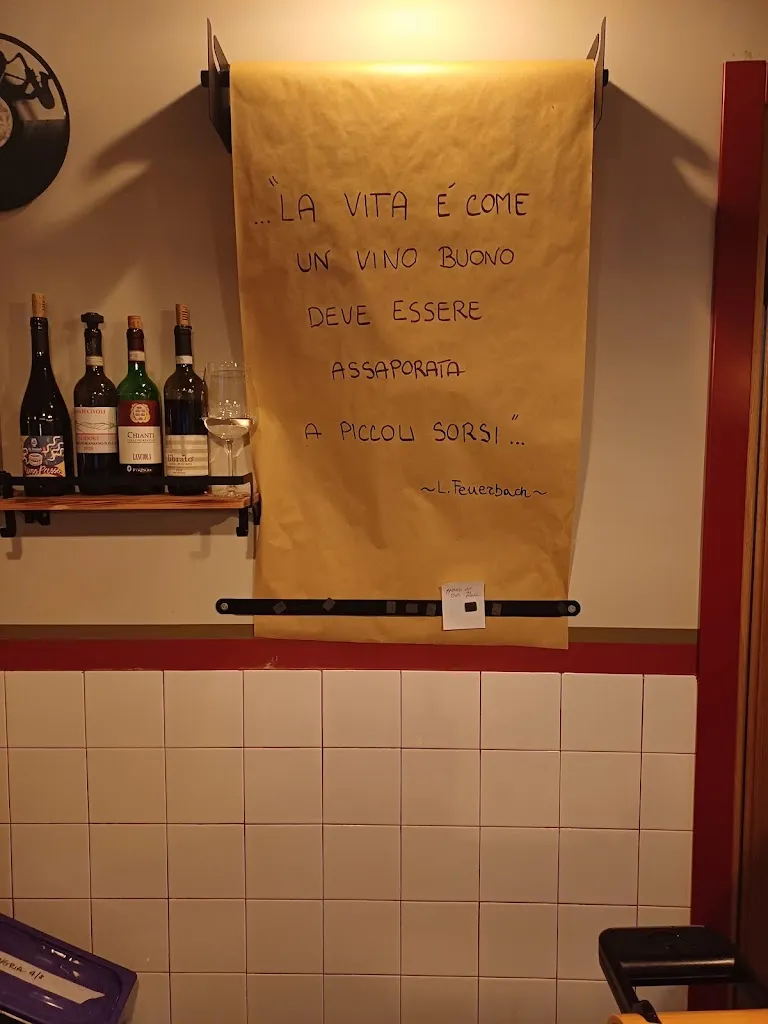 ..."LA VITA E' COME
UN VINO BUONO
DEVE ESSERE
ASSAPORATA
A PICCOLI SORSI"...
~L. Feuerbach~
CHIANTI
LANCIOLA
librato